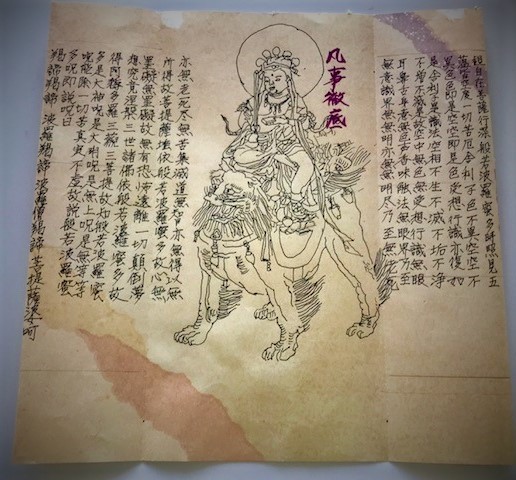 観自在菩薩行深般若波羅蜜多時照見五
蘊皆空度一切苦厄舍利子色不異空空不
異色色即是空空即是色受想行識亦復如
是舍利子是諸法空相不生不滅不垢不浄
不増不減是故空中無色無受想行識無眼
耳鼻舌身意無色声香味触法無眼界乃至
無意識界無無明亦無無明尽乃至無老死
凡事徹底
亦無老死尽無苦集滅道無智亦無得以無
所得故菩提薩埵依般若波羅蜜多故心無
罣礙無罣礙故無有恐怖遠離一切顛倒夢
想究竟涅槃三世諸佛依般若波羅蜜多故
得阿耨多羅三藐三菩提故知般若波羅蜜
多是大神呪是大明呪是無上呪是無等等
呪能除一切苦真実不虚故説般若波羅蜜
多呪即説呪曰
羯諦羯諦 波羅羯諦 波羅僧羯諦 菩提薩婆訶